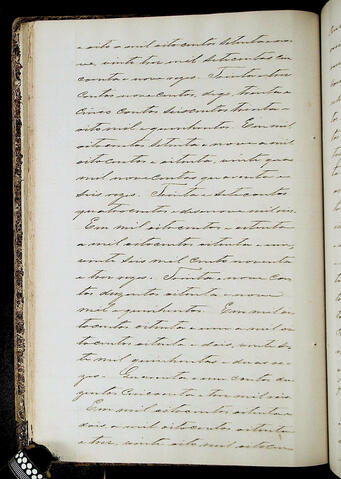 e oito a mil oitocentos setenta e no
ve, vinte tres mil setecentos cin
coenta e nove rezes. Trinta e tres
contos novecentos, digo, trinta e
cinco contos seiscentos trinta e
oito mil e quinhentos. Em mil
oitocentos setenta e nove a mil
oitocentos e oitenta, vinte qua
mil novecentos quarenta e
seis rezes. Trinta e sete contos
quatrocentos e desenove mil reis.
Em mil oitocentos e oitenta
a mil oitocentos oitenta e um,
vinte seis mil cento noventa
e tres rezes. Trinta e nove con
tos duzentos oitenta e nove
mil e quinhentos. Em mil oi
tocentos oitenta e um a mil oi
tocentos oitenta e dois, vinte se
te mil quinhentas e duas re
zes. Quarenta e um contos du
zentos cincoenta e tres mil reis.
Em mil oitocentos oitenta e
dois a mil oitocentos oitenta
e tres, vinte oito mil oitocen